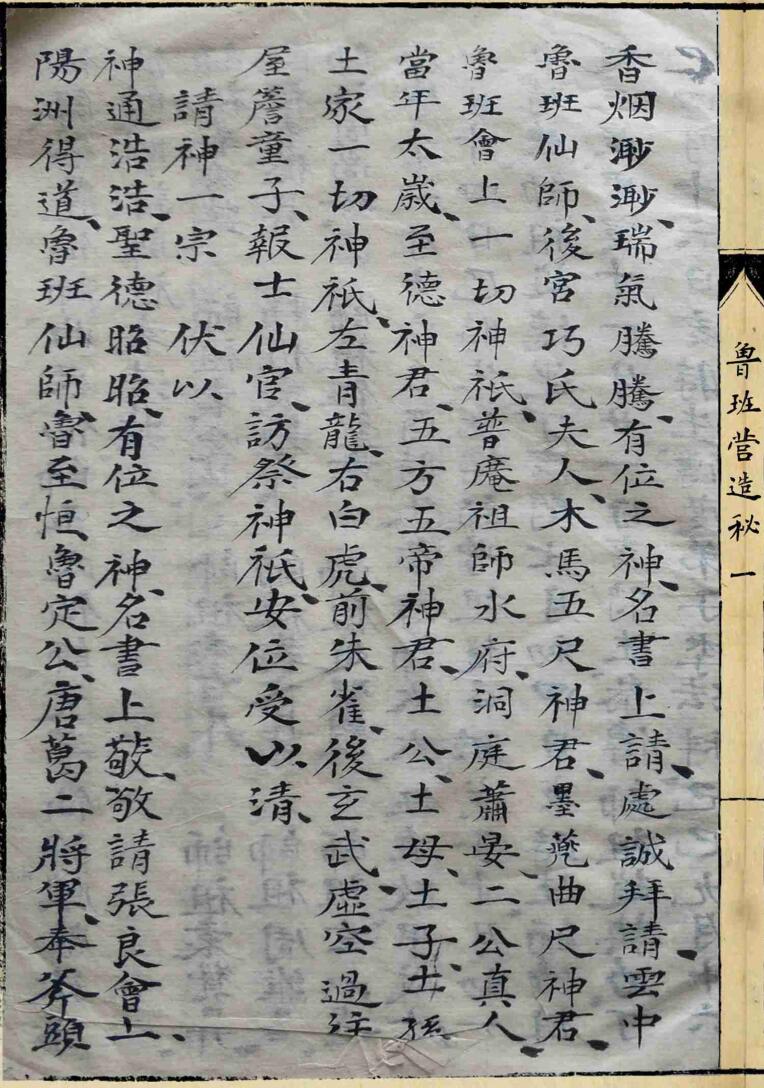 香烟渺渺、瑞氣騰騰、有位之神、名書上請、處誠拜請、雲中
魯班仙師、後宮巧氏夫人、木馬五尺神君、墨斗曲尺神君、
魯班會上一切神祇、普庵祖師水府、洞庭蕭晏二公真人、
當年太歲、至德神君、五方五帝神君、土公、土母、土子、土孫
土家一切神祇、左青龍、右白虎、前朱雀、後玄武、虛空過往
屋簷童子、報士仙官、訪祭神祇、安位受以清、
請神一宗 伏以
神通浩浩、聖德昭昭、有位之神、名書上敬、敬請張良會上、
陽洲得道、魯班仙師、魯至恒、魯定公、唐葛二將軍、奉斧頭
魯班营造秘一